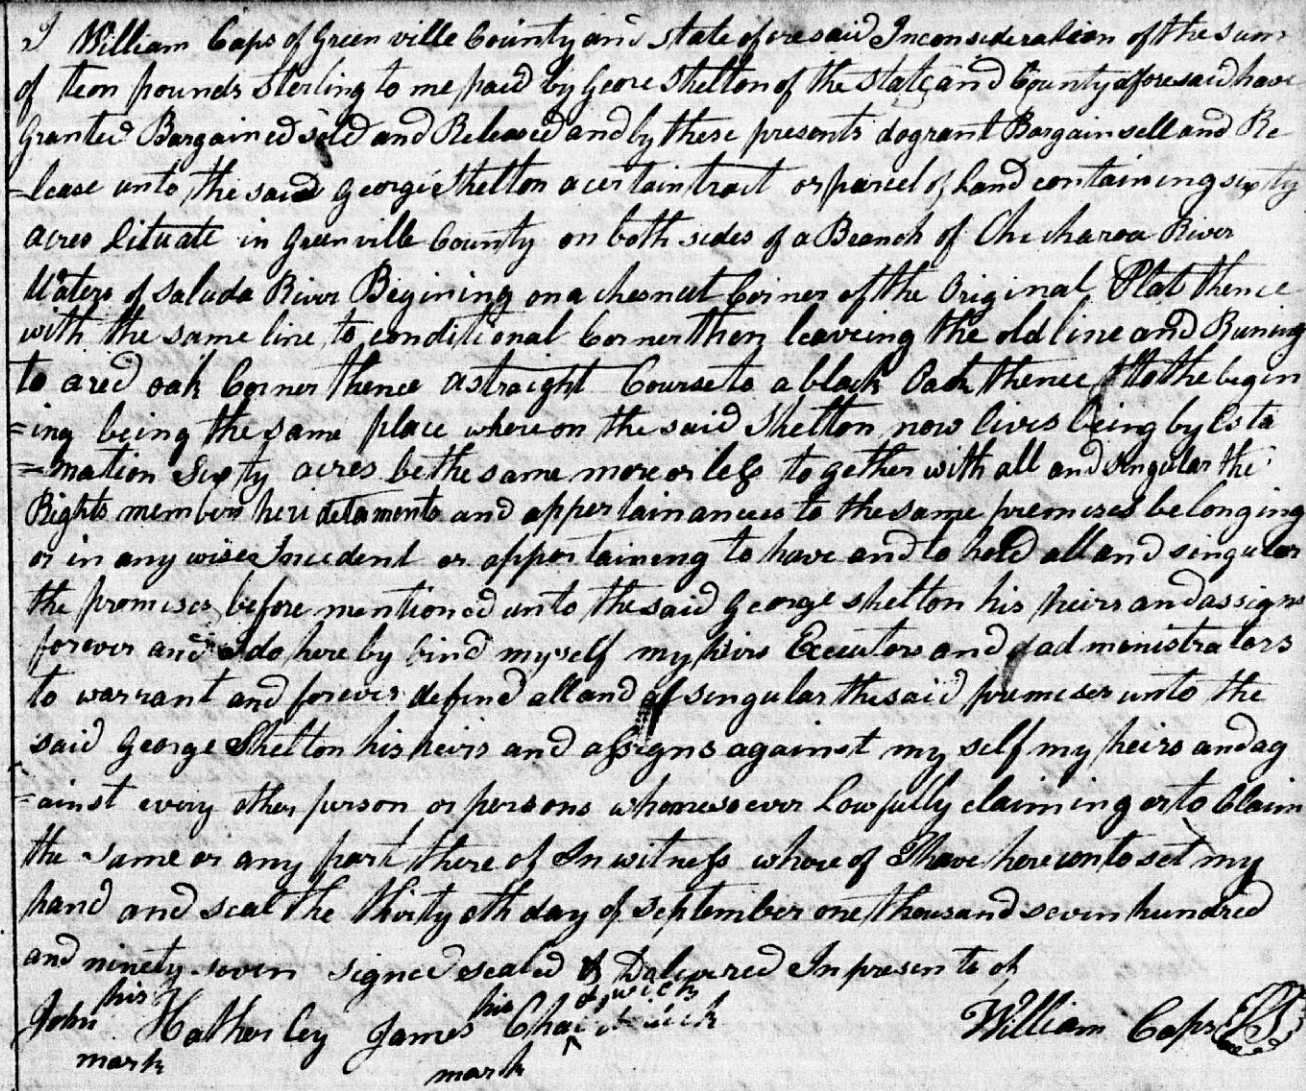 I William Caps of Greenville County and state aforesaid Inconsideration of the sum
of teon pounds sterling to me paid by Geore Shelton of the state and County aforesaid have
Granted Bargained sold and Released and by these presents do grant Bargain sell and Re
-lease unto the said George Shelton a certain tract or parcel of Land containing sixty
acres Situate in Greenville County on both sides of a Branch of Checharoa River
Waters of Saluda River Begining on a chesnut Corner of the Original Plat thence
with the same line to conditional Corner then leaveing the old line and Runing
to a red oak Corner thence a straight Course to a black Oak thence to the begin
=ing being the same place where on the said Shelton now lives being by Esta
=mation Sixty acres be the same more or less together with all and singular the
Rights members heridetaments and appertainances to the same premises belonging
or in any wise Incedent or appertaining to have and to hold all and singular
the premises before mentioned unto the said George Shelton his heirs and assigns
forever and I do here by bind myself my heirs Executors and admenistrators
to warrant and forever defend all and of singular the said premeses unto the
said George Shelton his heirs and assigns against my self my heirs and ag
-ainst every other person or persons whomesoever Lawfully claiming or to Claim
the same or any part there of In witness whereof I have hereunto set my
hand and seal the thirty oth day of September one thousand seven hundred
and ninety seven signed sealed & Delivered In presents of
John his Hatherley mark James his Cha dwick mark William Caps